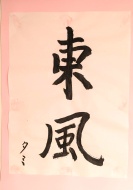 東風
タミ